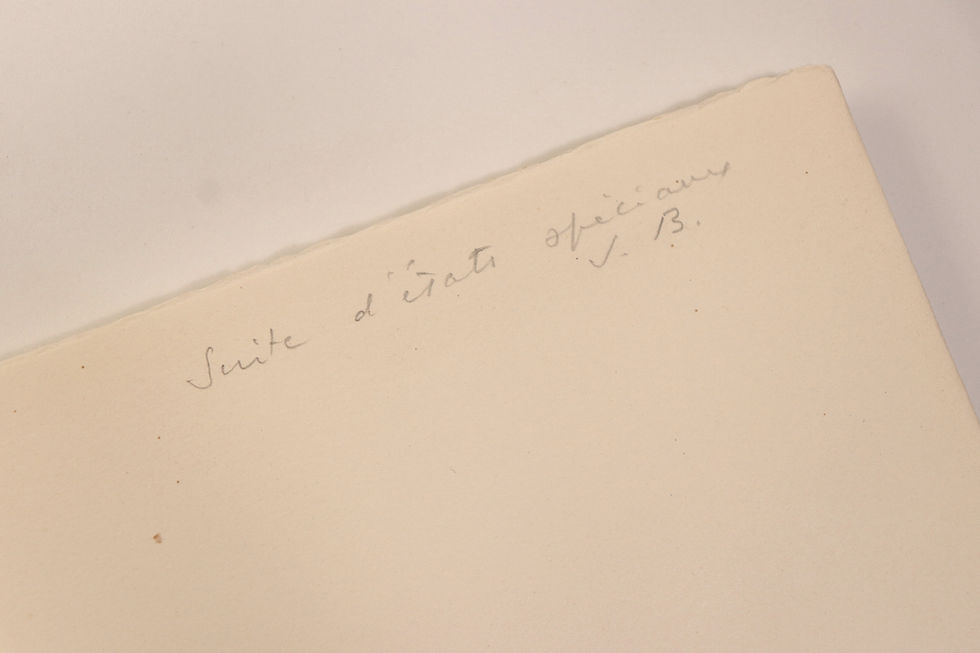 Suite d'états spéciaux
J. B.